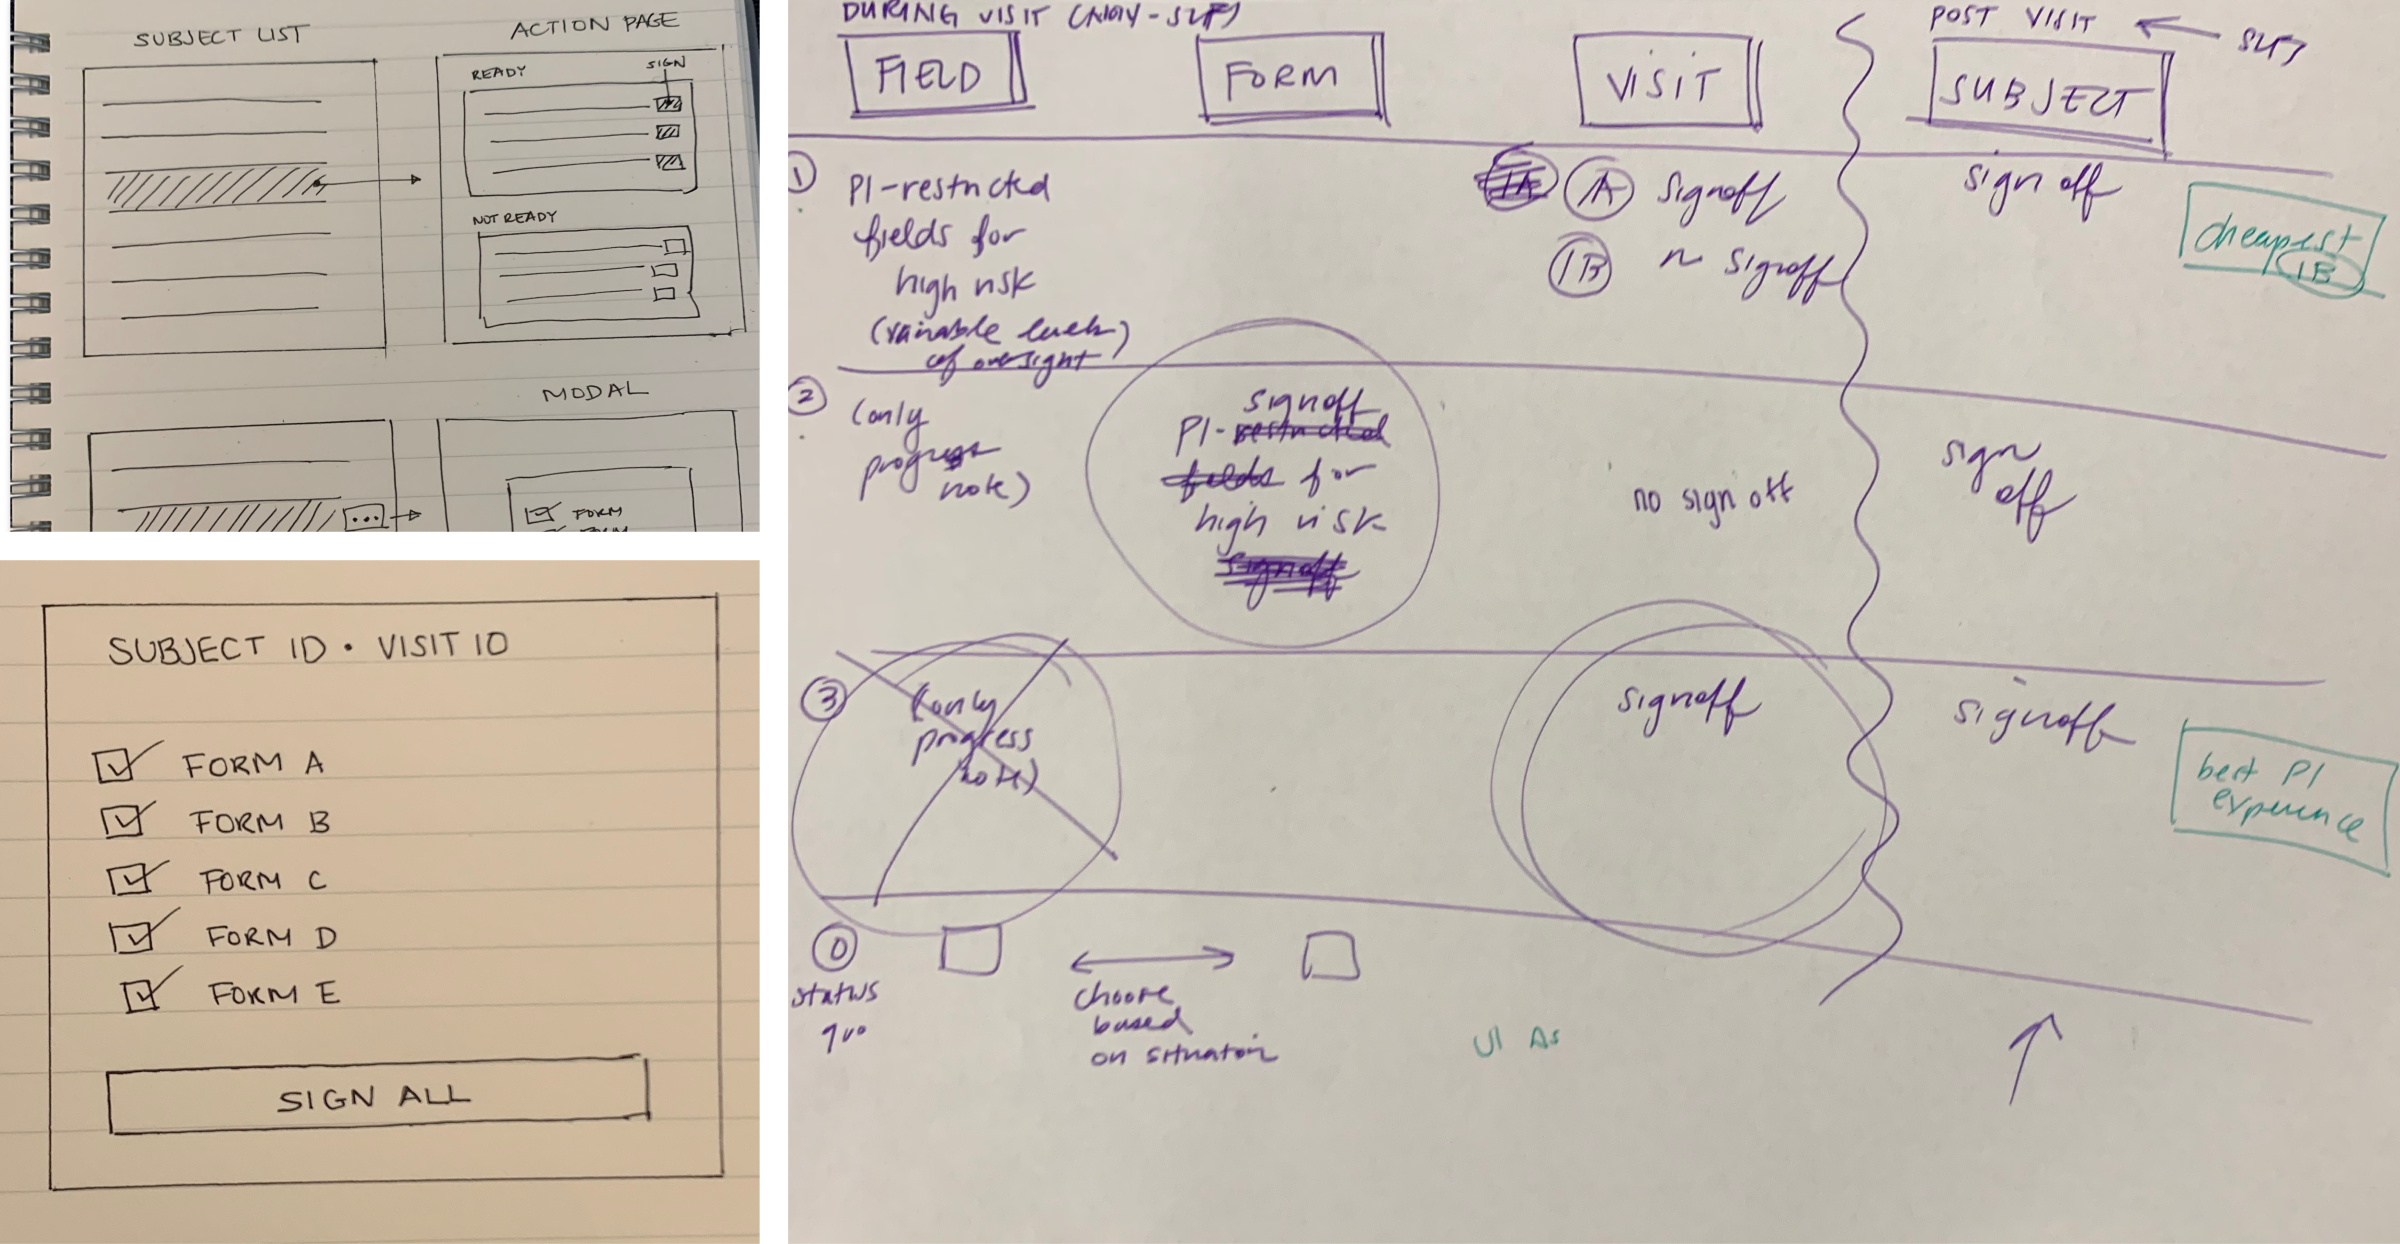 SUBJECT LIST
ACTION PAGE
READY
SIGN
NOT READY
MODAL
...
FORM
FORM
SUBJECT ID • VISIT ID
FORM A
FORM B
FORM C
FORM D
FORM E
SIGN ALL
DURING VISIT
POST VISIT
FIELD
FORM
VISIT
SUBJECT
1
PI-restricted
fields for
high risk
(variable
of oversight)
1A
A signoff
1B no signoff
sign off
cheapest
1B
2
(only
progress
note)
signoff
PI-restricted
fields for
high risk
signoff
no sign off
sign
off
3
(only
progress
note)
signoff
signoff
best PI
experience
0
status
quo
choose
based
on situation
UI As